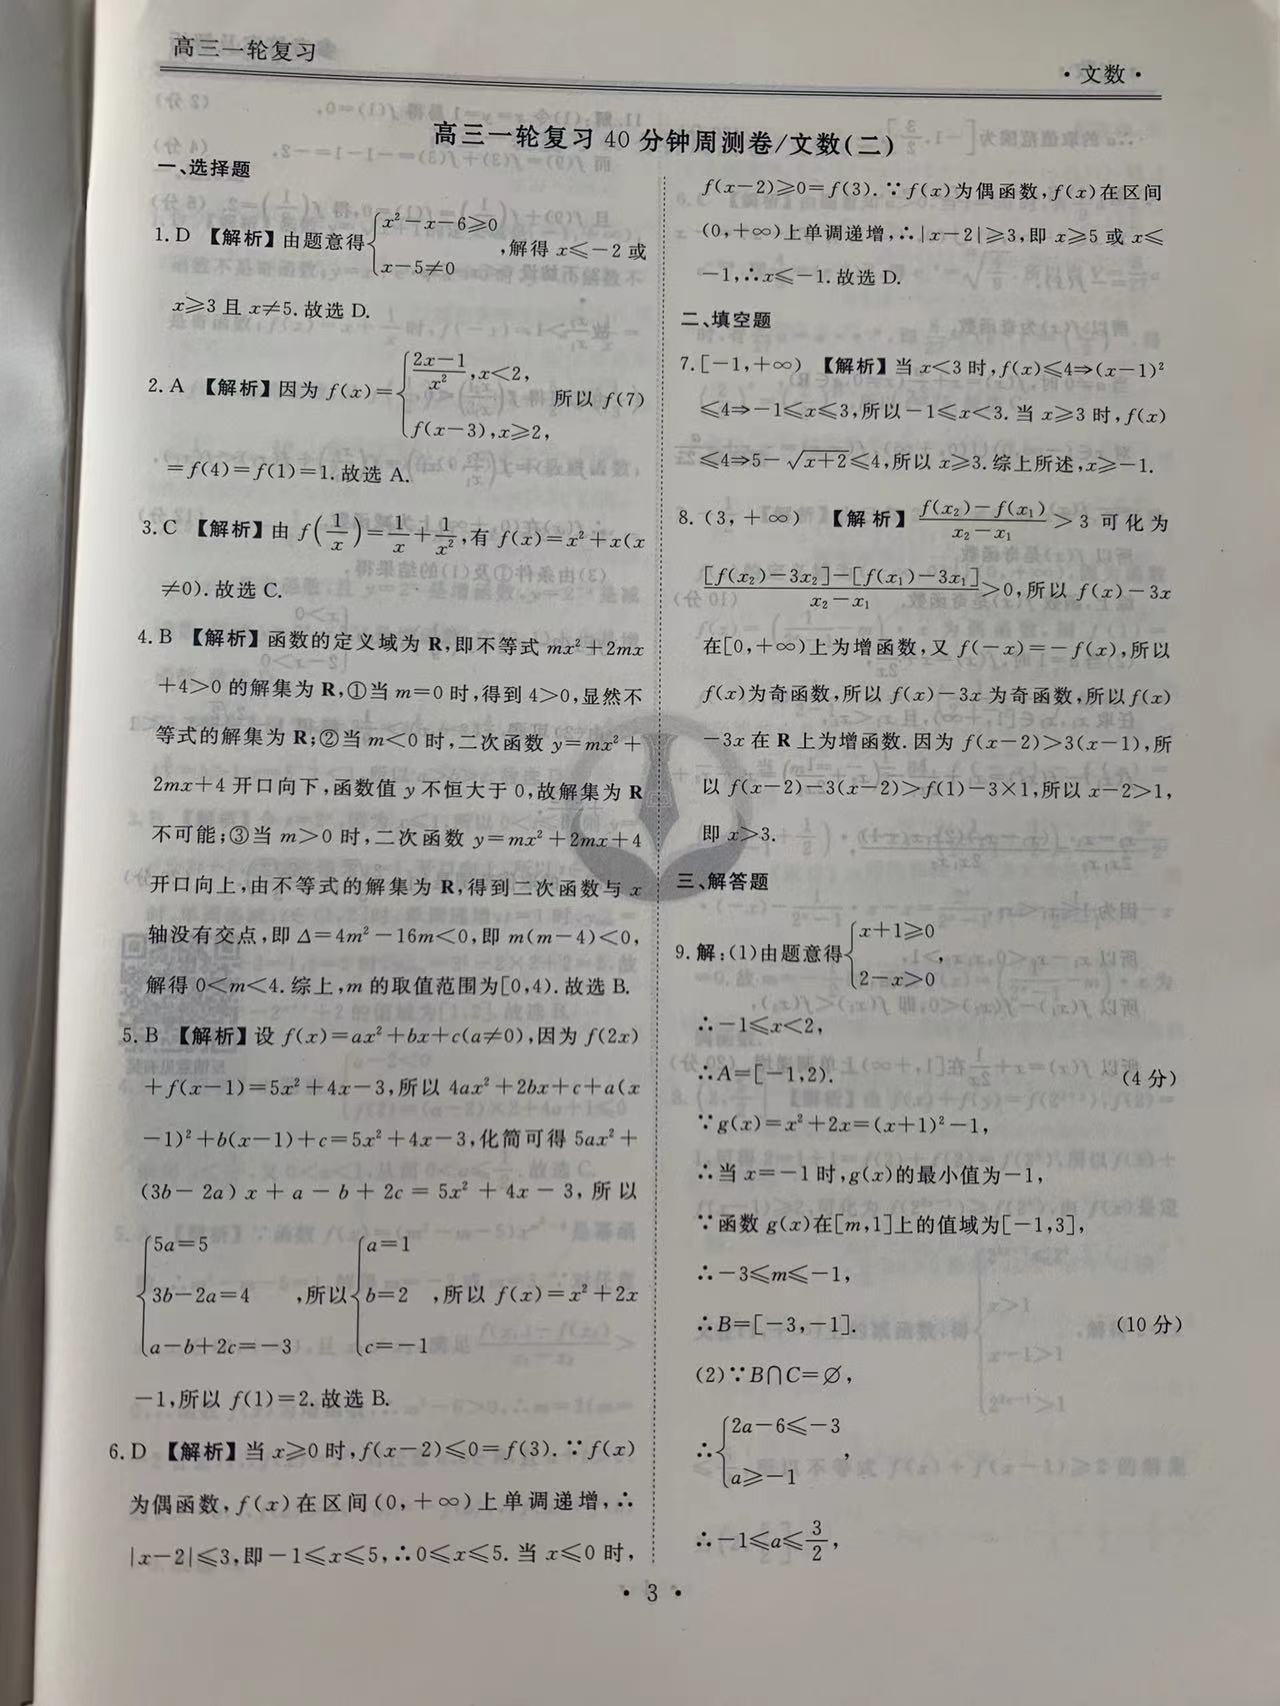 高三一轮复习
·文数·
高三一轮复习 40 分钟周测卷/文数(二)
一、选择题
1. D 【解析】由题意得{x²-x-6≥0
x-5≠0 ,解得 x≤-2 或
x≥3 且 x≠5. 故选 D.
2. A 【解析】因为 f(x)={(2x-1)/x²,x<2,
f(x-3),x≥2, 所以 f(7)
=f(4)=f(1)=1. 故选 A.
3. C 【解析】由 f(1/x)=1/x+1/x²,有 f(x)=x²+x(x
≠0). 故选 C.
4. B 【解析】函数的定义域为 R,即不等式 mx²+2mx
+4>0 的解集为 R,①当 m=0 时,得到 4>0,显然不
等式的解集为 R;②当 m<0 时,二次函数 y=mx²+
2mx+4 开口向下,函数值 y 不恒大于 0,故解集为 R
不可能;③当 m>0 时,二次函数 y=mx²+2mx+4
开口向上,由不等式的解集为 R,得到二次函数与 x
轴没有交点,即 Δ=4m²-16m<0,即 m(m-4)<0,
解得 0<m<4. 综上,m 的取值范围为[0,4). 故选 B.
5. B 【解析】设 f(x)=ax²+bx+c(a≠0),因为 f(2x)
+f(x-1)=5x²+4x-3,所以 4ax²+2bx+c+a(x
-1)²+b(x-1)+c=5x²+4x-3,化简可得 5ax²+
(3b-2a)x+a-b+2c=5x²+4x-3,所以
{5a=5
3b-2a=4
a-b+2c=-3 ,所以{a=1
b=2
c=-1 ,所以 f(x)=x²+2x
-1,所以 f(1)=2. 故选 B.
6. D 【解析】当 x≥0 时,f(x-2)≤0=f(3). ∵f(x)
为偶函数,f(x)在区间(0,+∞)上单调递增,∴
|x-2|≤3,即-1≤x≤5,∴0≤x≤5. 当 x≤0 时,
f(x-2)≥0=f(3). ∵f(x)为偶函数,f(x)在区间
(0,+∞)上单调递增,∴|x-2|≥3,即 x≥5 或 x≤
-1,∴x≤-1. 故选 D.
二、填空题
7. [-1,+∞) 【解析】当 x<3 时,f(x)≤4⇒(x-1)²
≤4⇒-1≤x≤3,所以-1≤x<3. 当 x≥3 时,f(x)
≤4⇒5-√(x+2)≤4,所以 x≥3. 综上所述,x≥-1.
8. (3,+∞) 【解析】(f(x₂)-f(x₁))/(x₂-x₁)>3 可化为
([f(x₂)-3x₂]-[f(x₁)-3x₁])/(x₂-x₁)>0,所以 f(x)-3x
在[0,+∞)上为增函数,又 f(-x)=-f(x),所以
f(x)为奇函数,所以 f(x)-3x 为奇函数,所以 f(x)
-3x 在 R 上为增函数. 因为 f(x-2)>3(x-1),所
以 f(x-2)-3(x-2)>f(1)-3×1,所以 x-2>1,
即 x>3.
三、解答题
9. 解:(1)由题意得{x+1≥0
2-x>0 ,
∴-1≤x<2,
∴A=[-1,2). (4 分)
∵g(x)=x²+2x=(x+1)²-1,
∴当 x=-1 时,g(x)的最小值为-1,
∵函数 g(x)在[m,1]上的值域为[-1,3],
∴-3≤m≤-1,
∴B=[-3,-1]. (10 分)
(2)∵B∩C=∅,
∴{2a-6≤-3
a≥-1 ,
∴-1≤a≤3/2,
· 3 ·